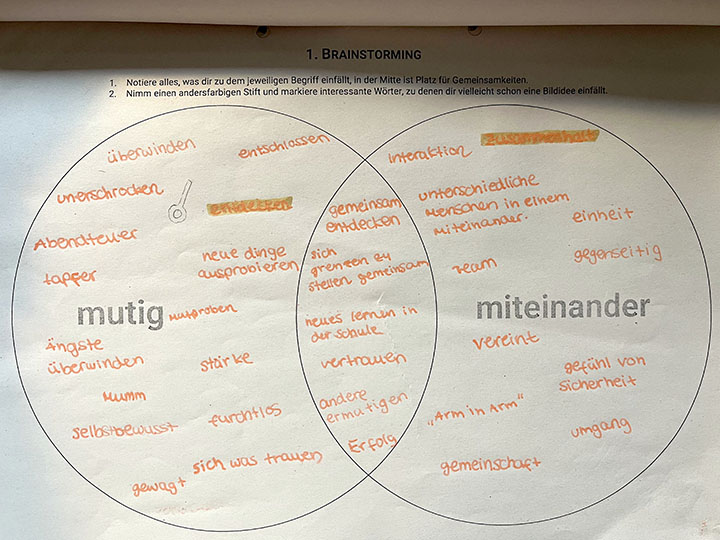 1. BRAINSTORMING
1. Notiere alles, was dir zu dem jeweiligen Begriff einfällt, in der Mitte ist Platz für Gemeinsamkeiten.
2. Nimm einen andersfarbigen Stift und markiere interessante Wörter, zu denen dir vielleicht schon eine Bildidee einfällt.
überwinden
entschlossen
unterschrocken
entdecken
Abendteuer
neue dinge
ausprobieren
tapfer
mutig
Mutproben
ängste
überwinden
stärke
Mumm
selbstbewusst
furchtlos
sich was trauen
gewagt
gemeinsam
entdecken
sich
grenzen zu
stellen gemeinsam
neues lernen in
der schule
vertrauen
andere
ermutigen
Erfolg
Interaktion
zusammenhalt
unterschiedliche
Menschen in einem
Miteinander.
einheit
gegenseitig
Team
miteinander
vereint
gefühl von
sicherheit
„Arm in Arm"
umgang
gemeinschaft